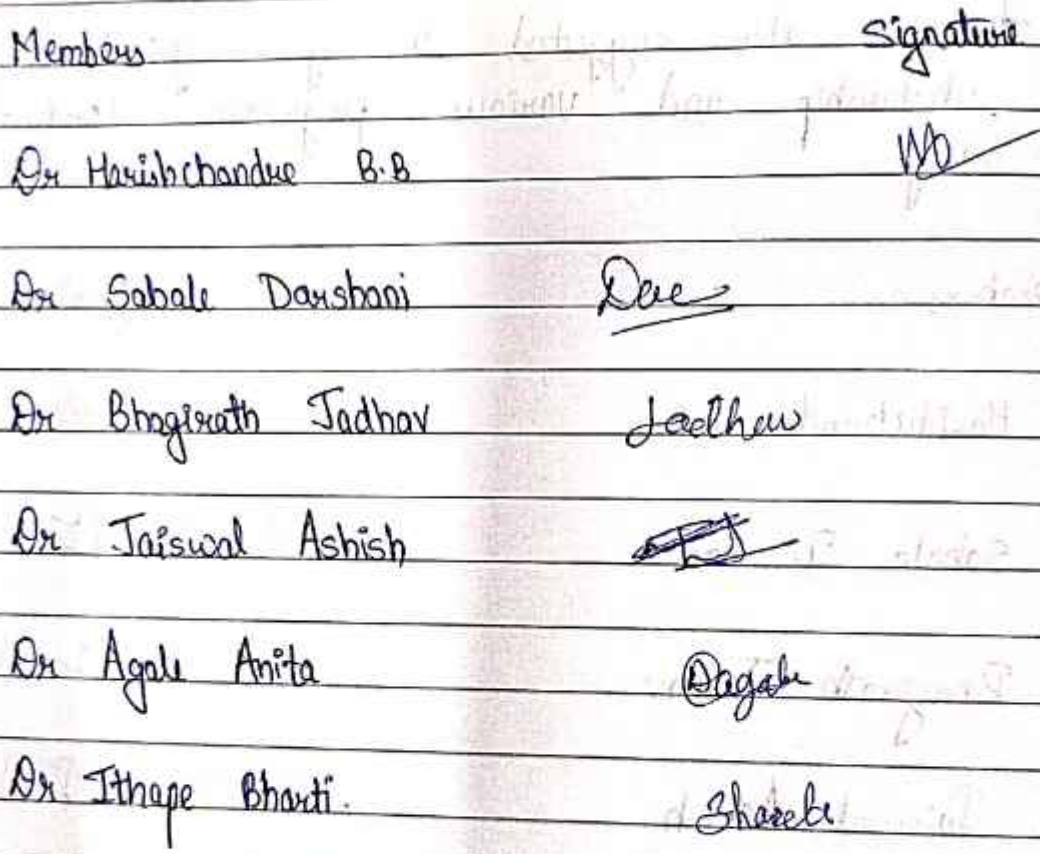 Members Signature
Dr Harishchandre B.B
Dr Sabale Darshani
Dr Bhagirath Jadhav Jadhav
Dr Jaiswal Ashish
Dr Agale Anita
Dr Ithape Bharti.